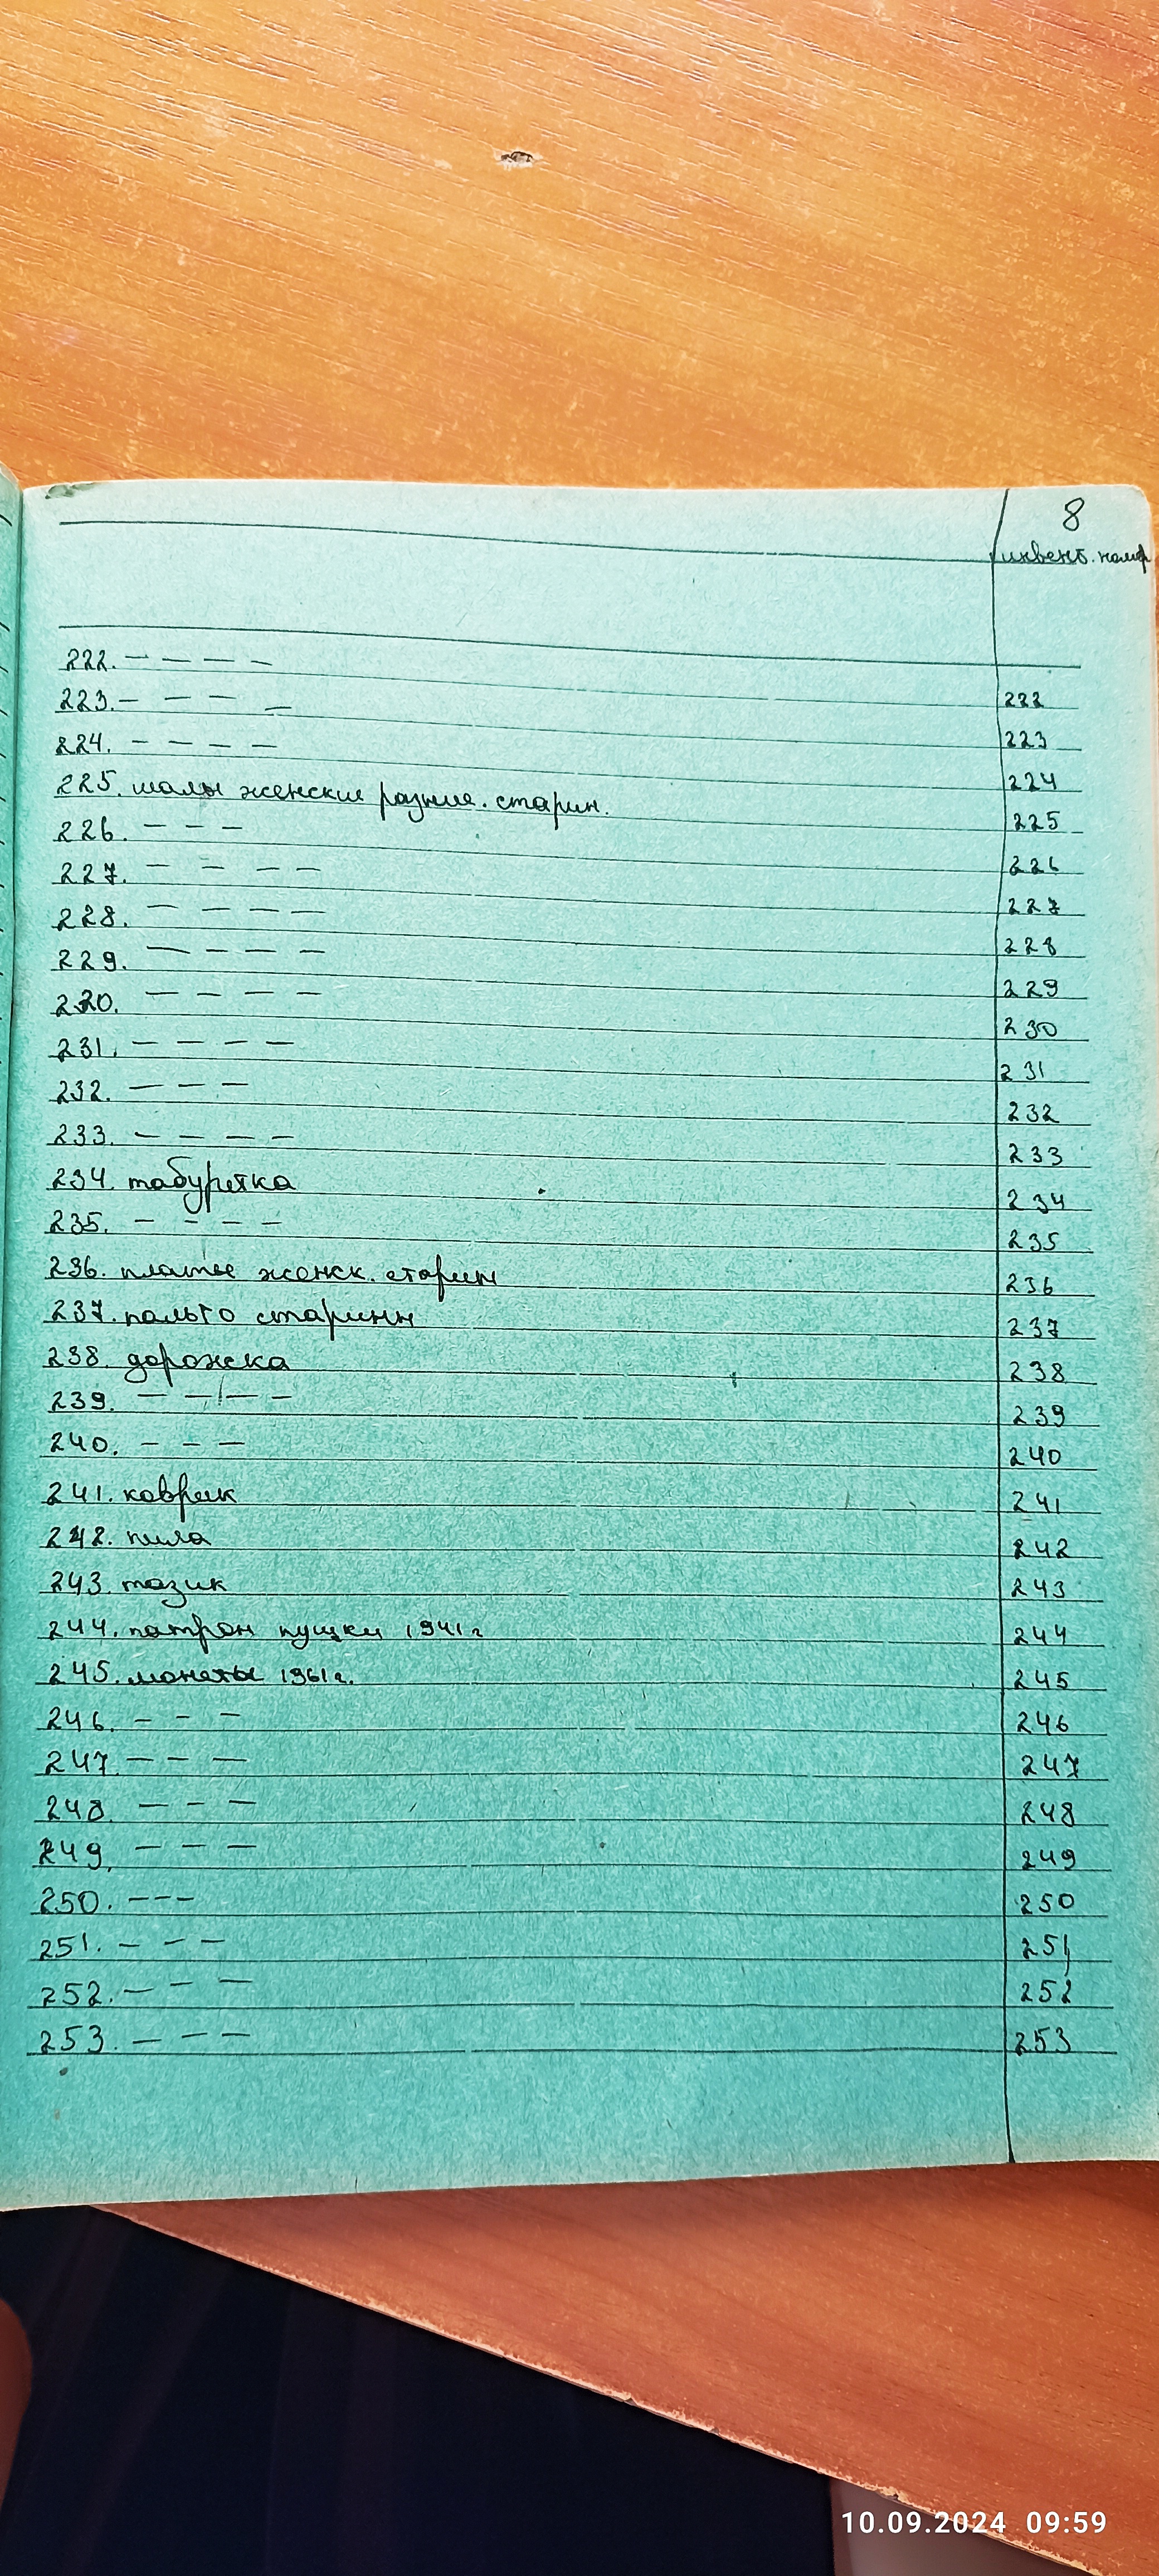 8
инвент. номер
222. — — — —
223. — — — — 222
224. — — — — 223
225. шалы женские разные. старин. 224
226. — — — 225
227. — — — — 226
228. — — — — 227
229. — — — — 228
230. — — — — 229
231. — — — — 230
232. — — — 231
233. — — — — 232
234. табуретка 233
235. — — — — 234
236. платье женск. старин 235
237. пальто старинн 236
238. дорожка 237
239. — — — — 238
240. — — — 239
241. коврик 240
242. пила 241
243. тазик 242
244. патрон пушки 1941 г 243
245. монеты 1961 г. 244
246. — — — 245
247. — — — 246
248. — — — 247
249. — — — 248
250. — — — 249
251. — — — 250
252. — — — 251
253. — — — 252
253
10.09.2024 09:59